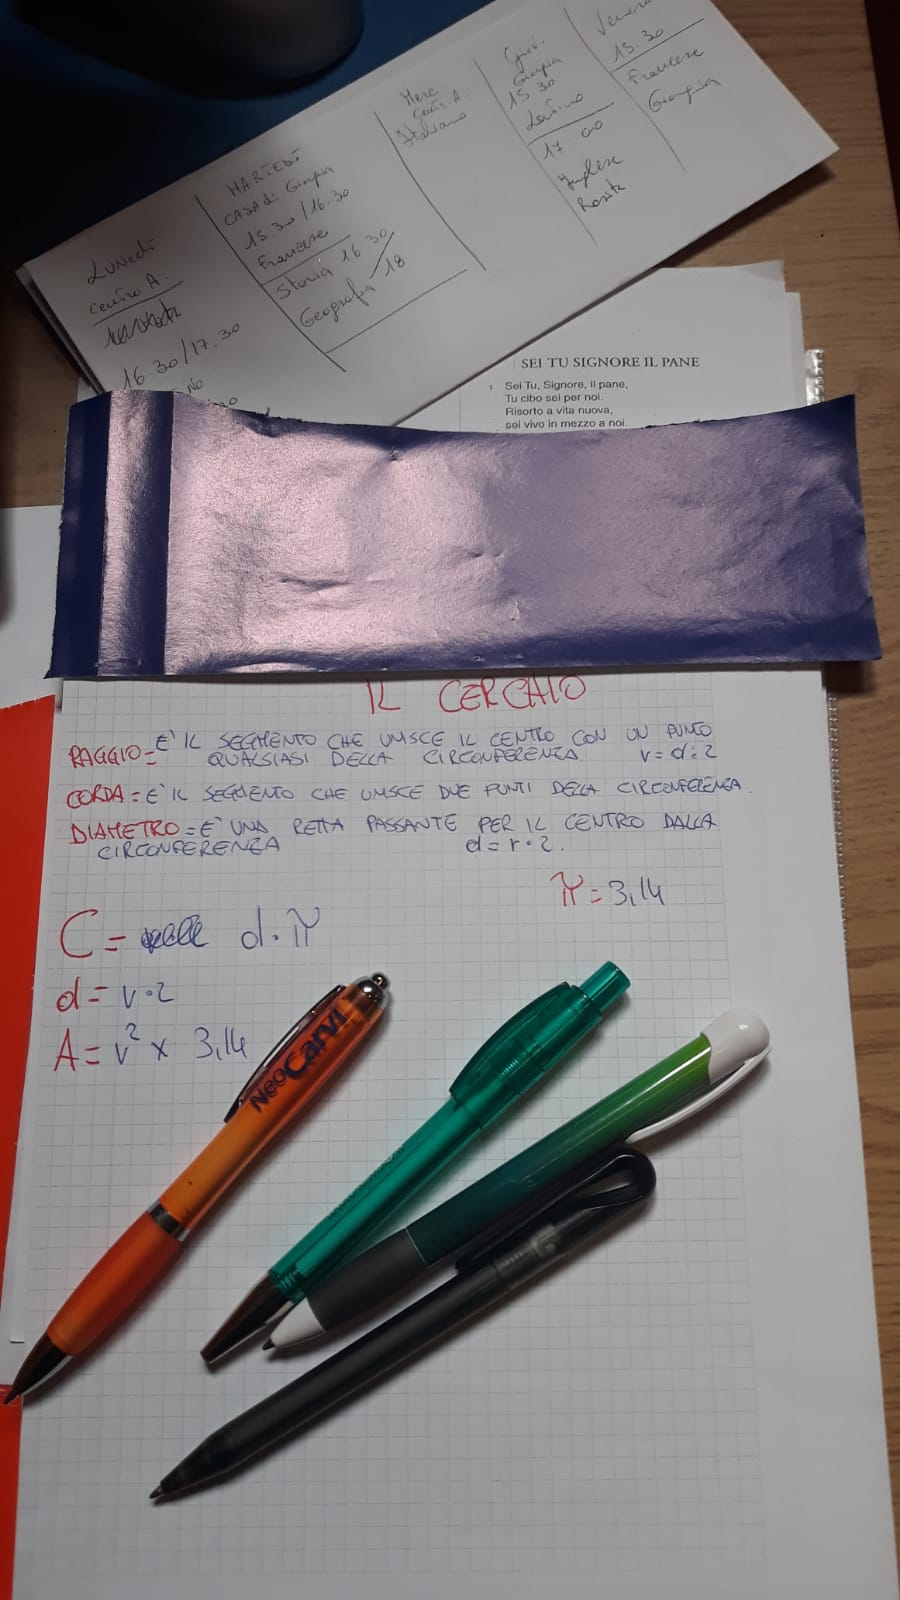 Lunedì
Centro A.
16.30/17.30
MARTEDÌ
CASA di Giorgia
15.30/16.30
Francese
Storia 16 30
Geografia / 18
Merc
Centro A.
Italiano
Giov.
Giorgia
15 30
Latino
17.00
Inglese
15.30
Francese
Giorgia
SEI TU SIGNORE IL PANE
1 Sei Tu, Signore, il pane,
Tu cibo sei per noi.
Risorto a vita nuova,
sei vivo in mezzo a noi.
IL CERCHIO
RAGGIO= È IL SEGMENTO CHE UNISCE IL CENTRO CON UN PUNTO
QUALSIASI DELLA CIRCONFERENZA r=d:2
CORDA= È IL SEGMENTO CHE UNISCE DUE PUNTI DELLA CIRCONFERENZA.
DIAMETRO= È UNA RETTA PASSANTE PER IL CENTRO DALLA
CIRCONFERENZA d=r·2.
π=3,14
C= d·π
d=r·2
A=r² x 3,14
NeoCarvi